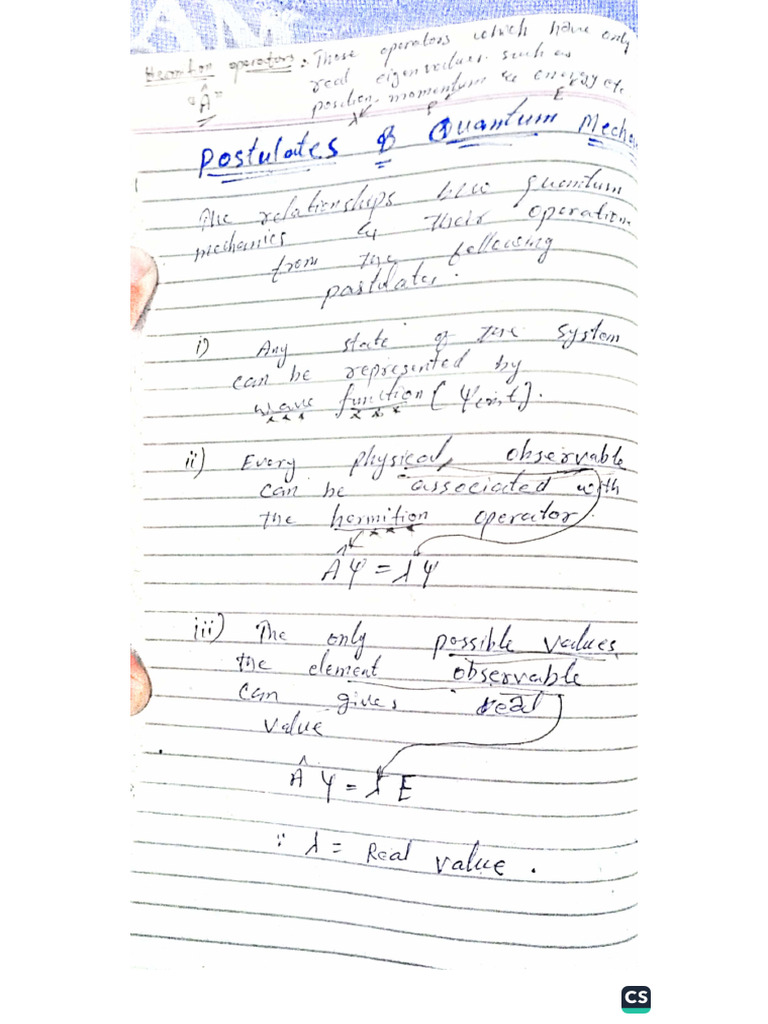 AM
Hermition operators: Those operators which have only
"Â" real eigenvalues such as
position, momentum & energy etc
x P E
Postulates of Quantum Mecha
The relationships b/w quantum
mechanics & their operation
from the following
postulates.
i) Any state of the system
can be represented by
wave function [ψ(x,t)].
ii) Every physical observable
can be associated with
the hermition operator.
Âψ = λψ
iii) The only possible values
the element observable
can gives real
value
Âψ = λE
∵ λ = Real value.
CS